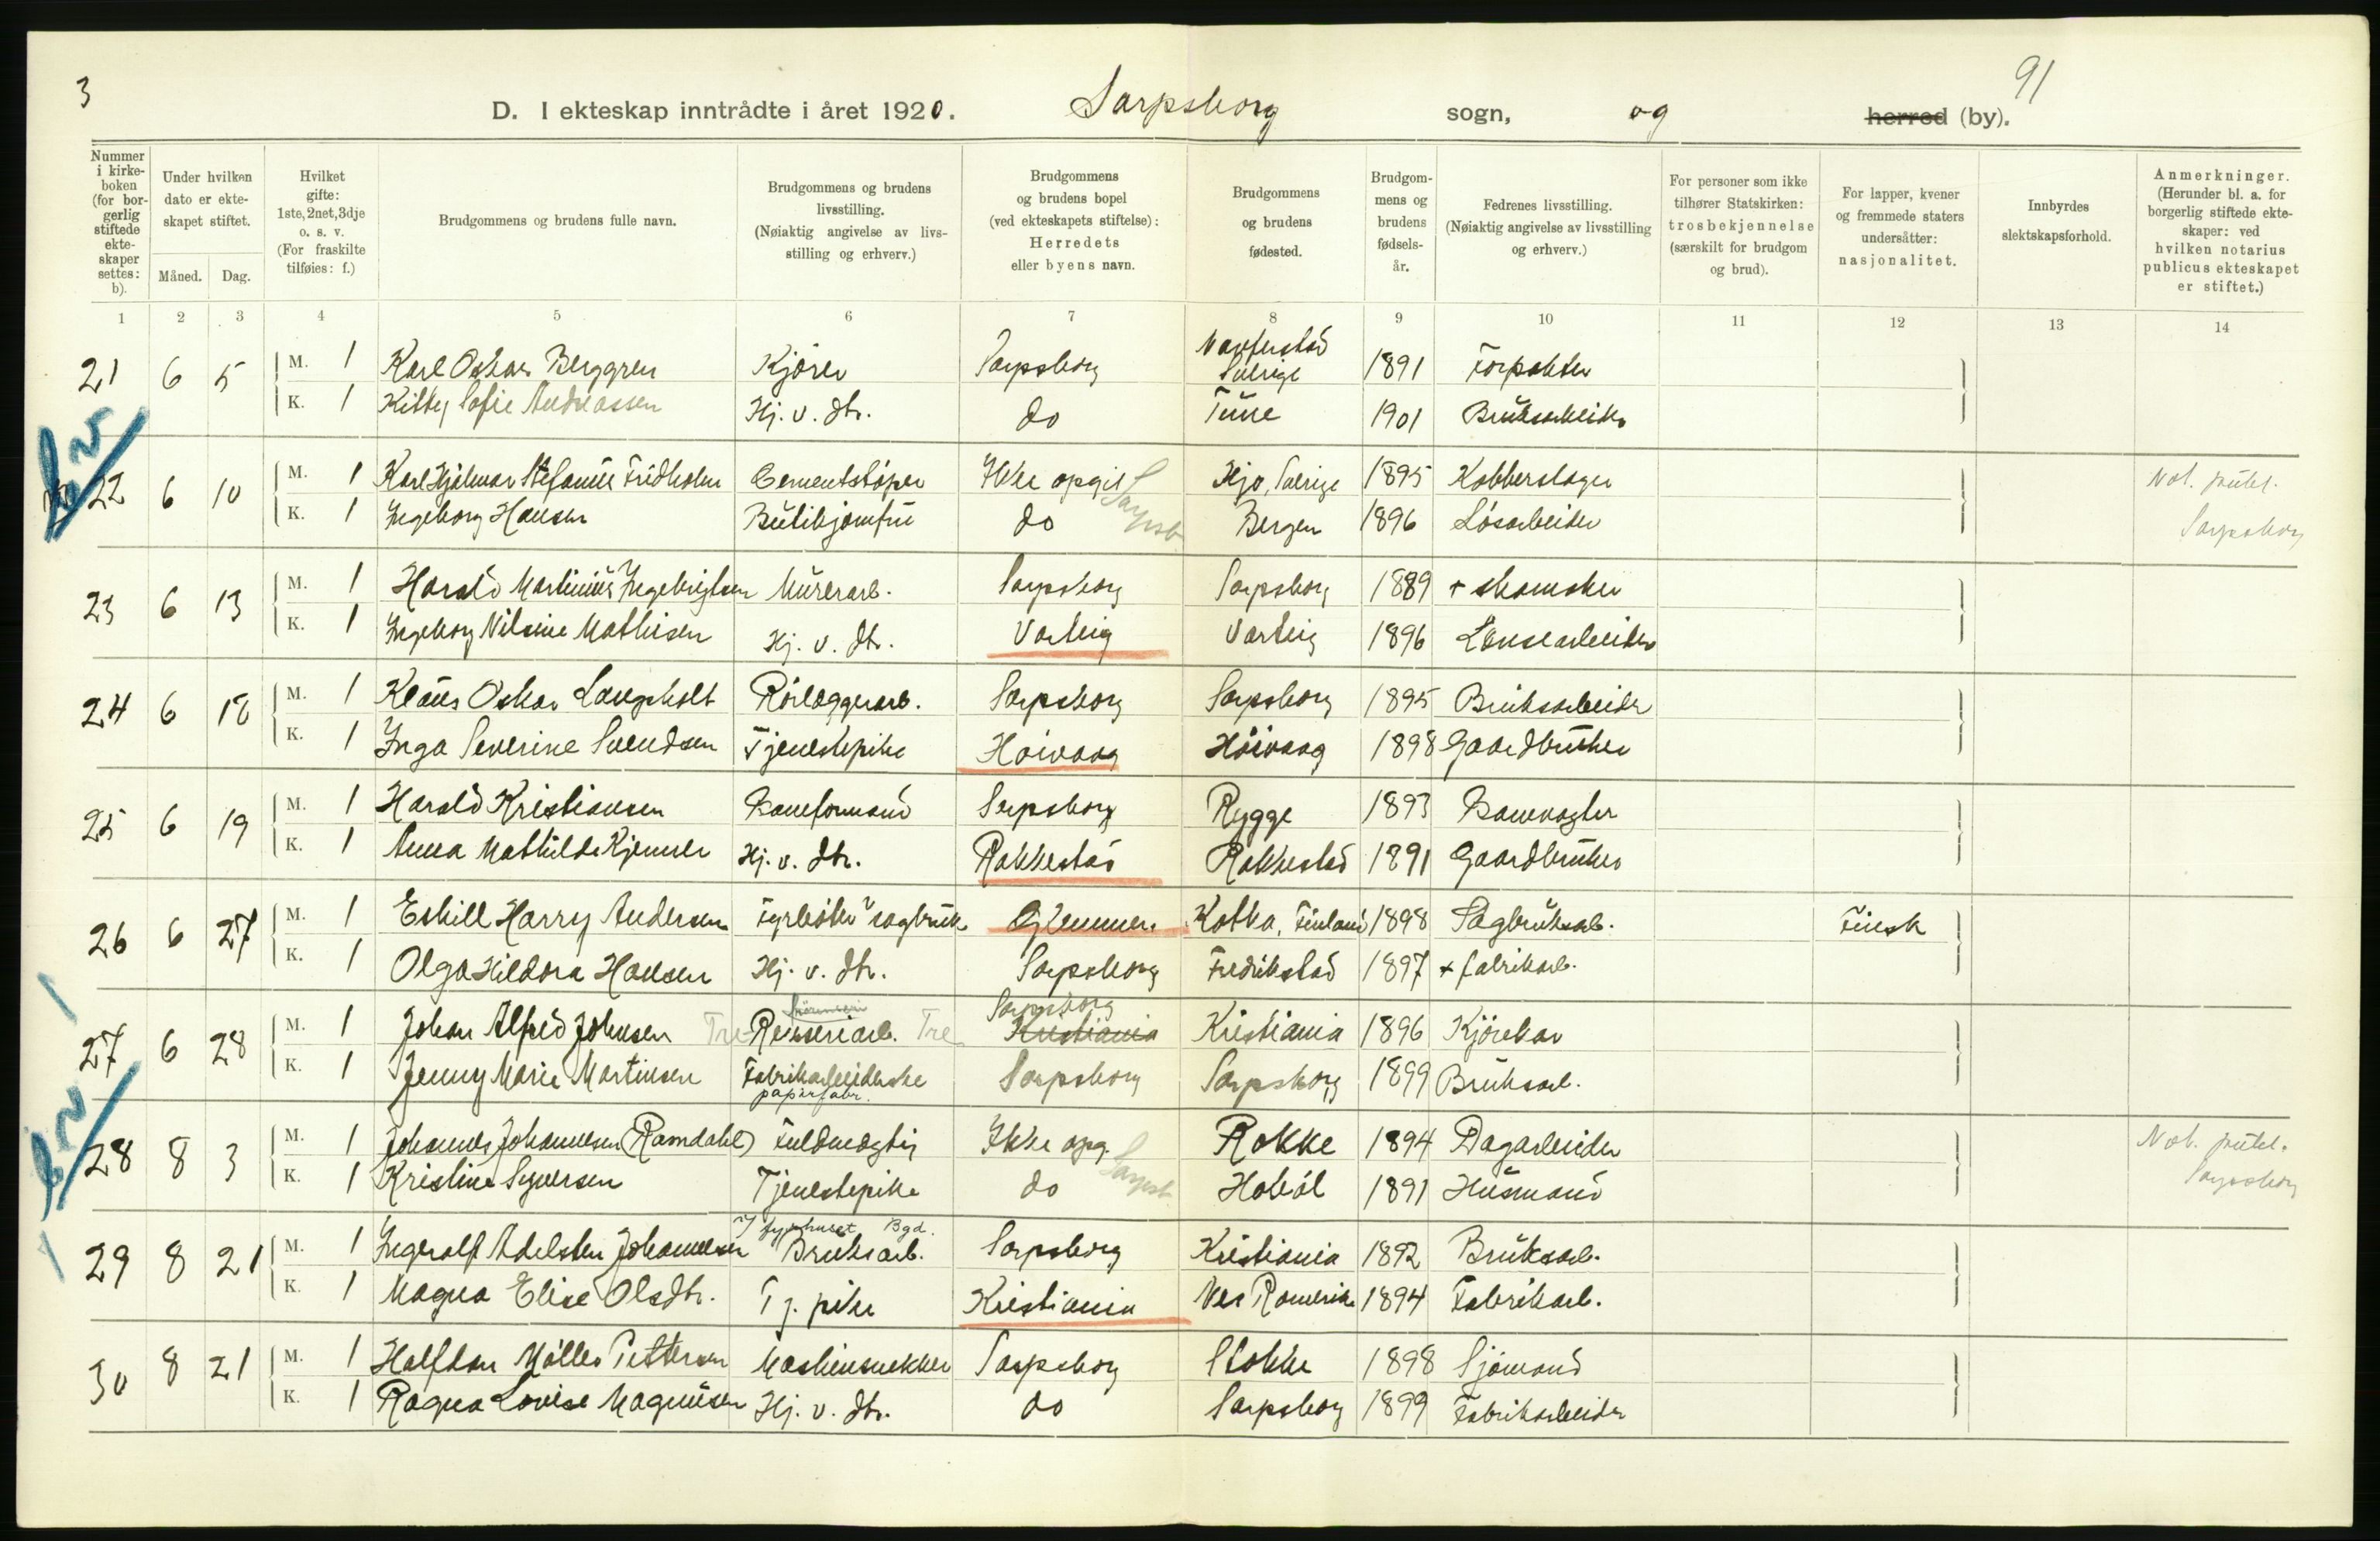 3
91
D. I ekteskap inntrådte i året 1920. Sarpsborg sogn, og herred (by).
Nummer i kirkeboken (for borgerlig stiftede ekteskaper settes: b).
Under hvilken dato er ekteskapet stiftet.
Måned. Dag.
Hvilket gifte: 1ste, 2net, 3dje o. s. v. (For fraskilte tilføies: f.)
Brudgommens og brudens fulle navn.
Brudgommens og brudens livsstilling. (Nøiaktig angivelse av livsstilling og erhverv.)
Brudgommens og brudens bopel (ved ekteskapets stiftelse): Herredets eller byens navn.
Brudgommens og brudens fødested.
Brudgommens og brudens fødselsår.
Fedrenes livsstilling. (Nøiaktig angivelse av livsstilling og erhverv.)
For personer som ikke tilhører Statskirken: trosbekjennelse (særskilt for brudgom og brud).
For lapper, kvener og fremmede staters undersåtter: nasjonalitet.
Innbyrdes slektskapsforhold.
Anmerkninger. (Herunder bl. a. for borgerlig stiftede ekteskaper: ved hvilken notarius publicus ekteskapet er stiftet.)
1 2 3 4 5 6 7 8 9 10 11 12 13 14
21 6 5 M. 1 Karl Oskar Berggren Kjører Sarpsborg Sverige 1891 Forpakter
K. 1 Kitty Sofie Andreassen Hj. v. dtr. do Tune 1901 Bruksarbeider
22 6 10 M. 1 Karl Hjalmar Stefanus Fridholm Cementstøper Ikke opgit Sarpsb Hjo, Sverige 1895 Kobberslager Not. publ.
K. 1 Ingeborg Hansen Butikjomfru do Bergen 1896 Løsarbeider Sarpsborg
23 6 13 M. 1 Harald Martinius Ingebrigtsen Murerarb. Sarpsborg Sarpsborg 1889 + skomaker
K. 1 Ingeborg Nilsine Mathisen Hj. v. dtr. Varteig Varteig 1896 Lensearbeider
24 6 18 M. 1 Klaus Oskar Langholt Rørlæggerarb. Sarpsborg Sarpsborg 1895 Bruksarbeider
K. 1 Inga Severine Svendsen Tjenestepike Høivaag Høivaag 1898 Gaardbruker
25 6 19 M. 1 Harald Kristiansen Baneformand Sarpsborg Rygge 1893 Banevogter
K. 1 Anna Mathilde Kjenner Hj. v. dtr. Rakkestad Rakkestad 1891 Gaardbruker
26 6 27 M. 1 Eskill Harry Andersen Fyrbøter v sagbruk Glemmen Kotka, Finland 1898 Sagbruksarb. Finsk
K. 1 Olga Hildora Hansen Hj. v. dtr. Sarpsborg Fredrikstad 1897 + fabrikarb.
Sarpsborg
27 6 28 M. 1 Johan Alfred Johnsen Tre- Renseriarb. Tre Kristiania Kristiania 1896 Kjørekar
K. 1 Jenny Marie Martinsen Fabrikarbeiderske Sarpsborg Sarpsborg 1899 Bruksarb.
papirfabr.
28 8 3 M. 1 Johannes Johannesen (Ramdahl) Fuldmægtig Ikke opg. Sarpsb Rokke 1894 Dagarbeider Not. publ.
K. 1 Kristine Syversen Tjenestepike do Hobøl 1891 Husmand Sarpsborg
I syrehuset Bgd.
29 8 21 M. 1 Ingvalf Adelsten Johannesen Bruksarb. Sarpsborg Kristiania 1892 Bruksarb.
K. 1 Magna Elise Olsdtr. Tj. pike Kristiania Nes Romerike 1894 Fabrikarb.
30 8 21 M. 1 Halfdan Møller Pettersen Maskinsnekker Sarpsborg Stokke 1898 Sjømand
K. 1 Ragna Lovise Magnusen Hj. v. dtr. do Sarpsborg 1899 Fabrikarbeider